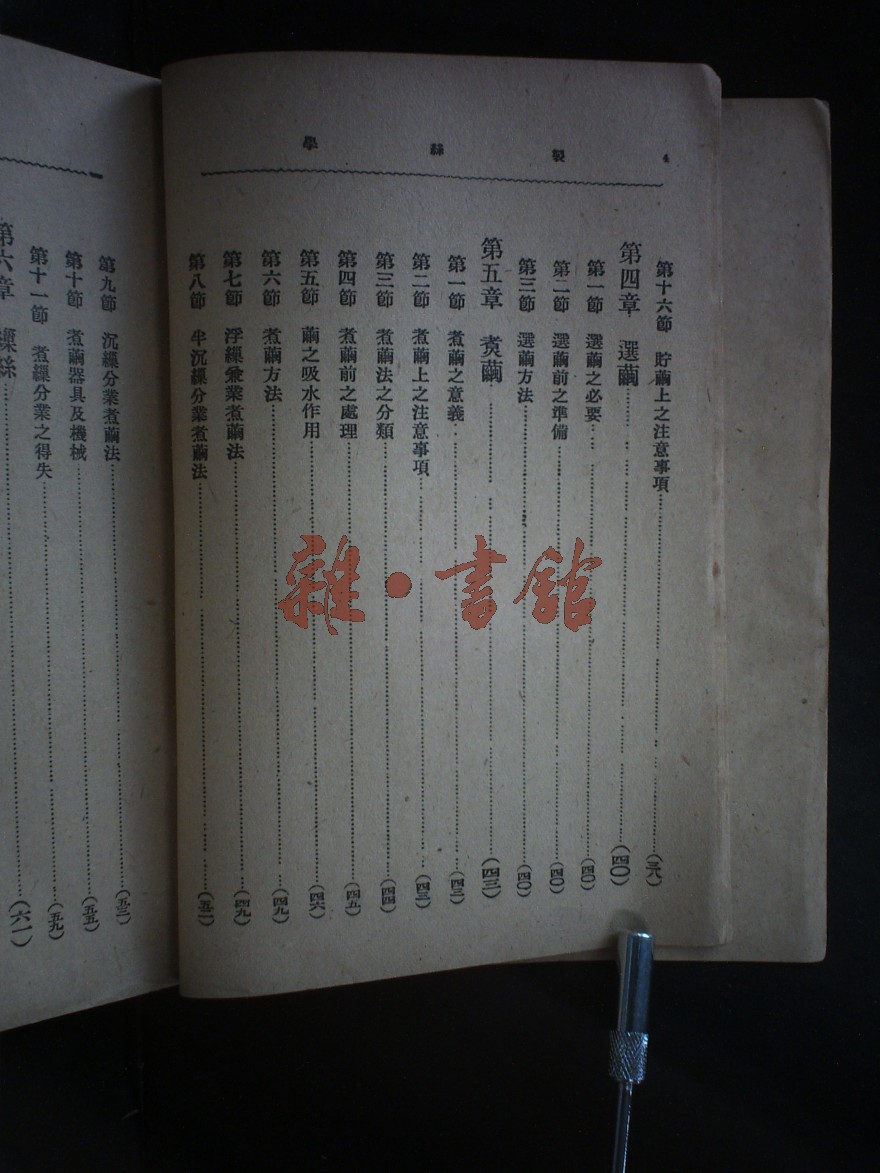 4 製絲學
第十六節 貯繭上之注意事項……(三八)
第四章 選繭……(四〇)
第一節 選繭之必要……(四〇)
第二節 選繭前之準備……(四〇)
第三節 選繭方法……(四〇)
第五章 煑繭……(四三)
第一節 煮繭之意義……(四三)
第二節 煮繭上之注意事項……(四三)
第三節 煮繭法之分類……(四四)
第四節 煮繭前之處理……(四五)
第五節 繭之吸水作用……(四六)
第六節 煮繭方法……(四九)
第七節 浮繅兼業煮繭法……(四九)
第八節 半沉繅分業煮繭法……(五二)
第九節 沉繅分業煮繭法……(五三)
第十節 煮繭器具及機械……(五五)
第十一節 煮繅分業之得失……(五九)
第六章 繅絲……(六一)
雜·書館